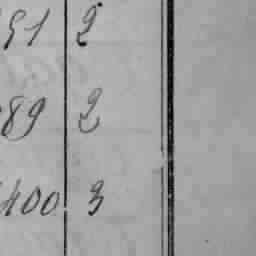 51 2
89 2
400 3